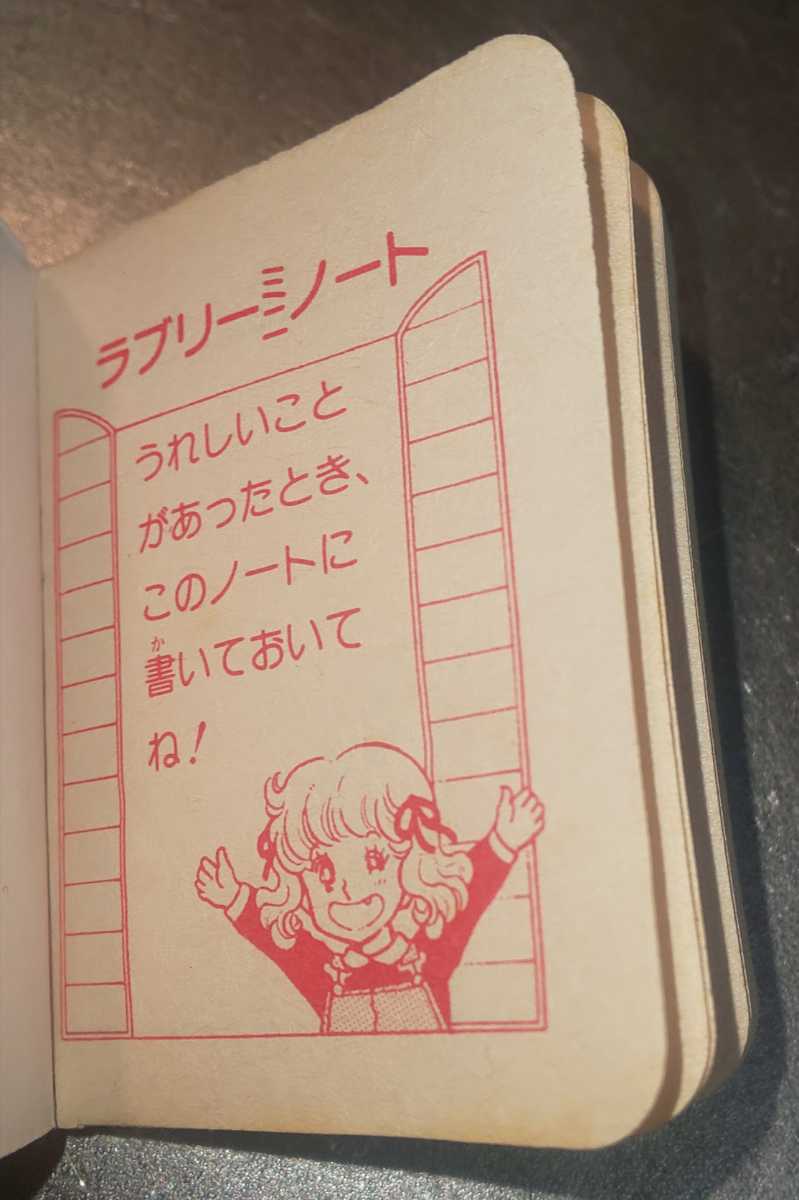 ラブリーミニノート
うれしいこと
があったとき、
このノートに
書いておいて
ね!